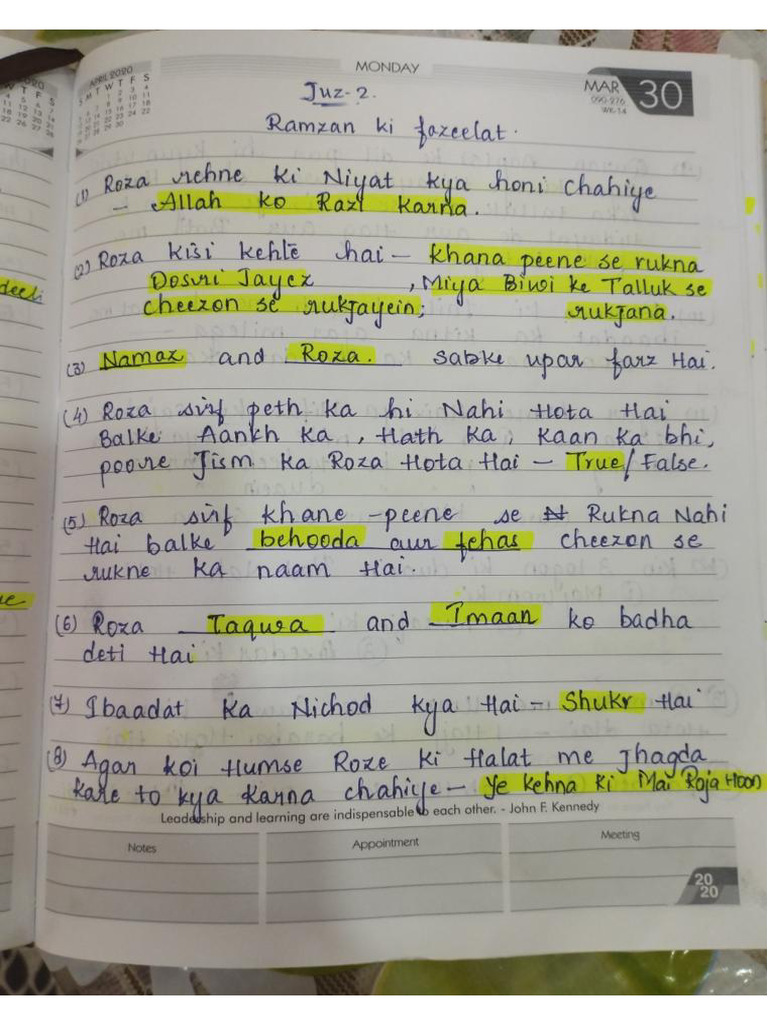 MONDAY
APRIL 2020
S M T W T F S
MAR
090-276
WK-14
30
Juz-2.
Ramzan ki fazeelat.
(1) Roza rehne ki Niyat kya honi chahiye
- Allah ko Razi karna.
(2) Roza kisi kehte hai - khana peene se rukna
Dosri Jayez , Miya Biwi ke Talluk se
cheezon se rukJayein; rukJana.
(3) Namaz and Roza. sabke upar farz Hai.
(4) Roza sirf peth ka hi Nahi Hota Hai
Balke Aankh ka, Hath ka, kaan ka bhi,
poore Jism ka Roza Hota Hai - True/False.
(5) Roza sirf khane-peene se N Rukna Nahi
Hai balke behooda aur fehas cheezon se
rukne ka naam Hai.
(6) Roza Taqwa and Imaan ko badha
deti Hai
(7) Ibaadat ka Nichod kya Hai - Shukr Hai
(8) Agar koi Humse Roze ki Halat me Jhagda
kare to kya karna chahiye - Ye kehna ki Mai Roja Hoon
Leadership and learning are indispensable to each other. - John F. Kennedy
Notes
Appointment
Meeting
20
20